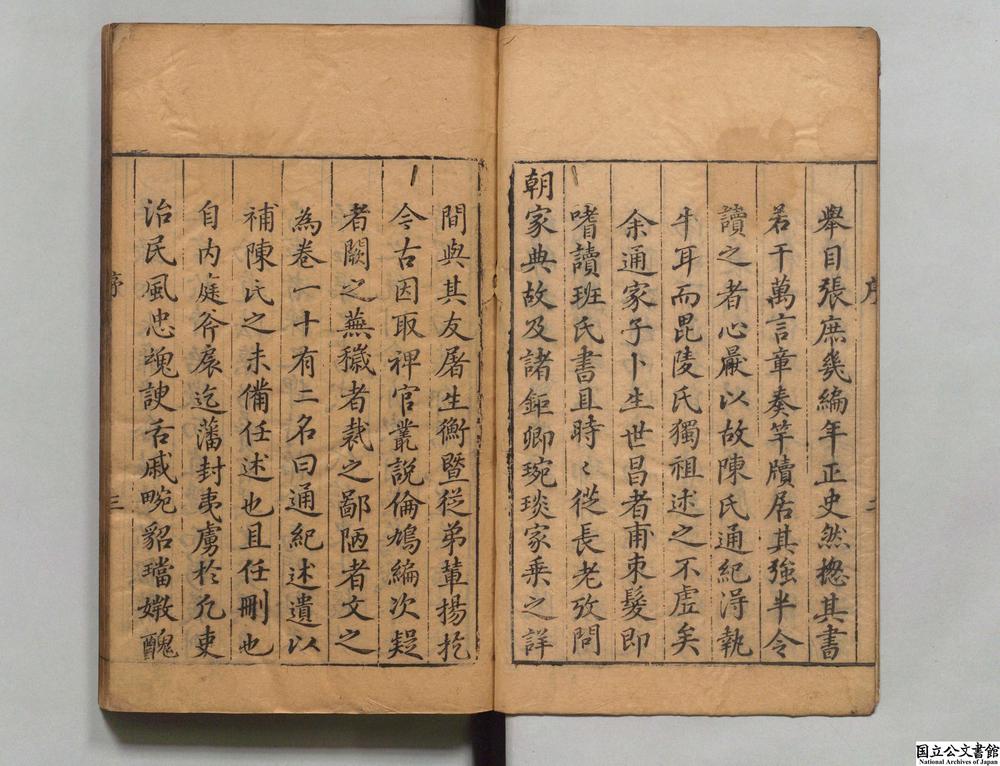 舉目張庶幾編年正史然揔其書
若干萬言章奏竿牘居其強半令
讀之者心厭以故陳氏通紀淂執
牛耳而毘陵氏獨祖述之不虛矣
余通家子卜生世昌者甫束髮即
嗜讀班氏書且時〻從長老攷問
朝家典故及諸鉅卿琬琰家乗之詳
序
二
間與其友屠生衡暨從弟輩揚扢
今古因取稗官叢説倫鳩編次疑
者闕之蕪穢者裁之鄙陋者文之
為卷一十有二名曰通紀述遺以
補陳氏之未備任述也且任刪也
自内庭斧扆迄藩封夷虜於凢吏
治民風忠魂諛舌戚畹貂璫媺醜
序
三
国立公文書館
National Archives of Japan